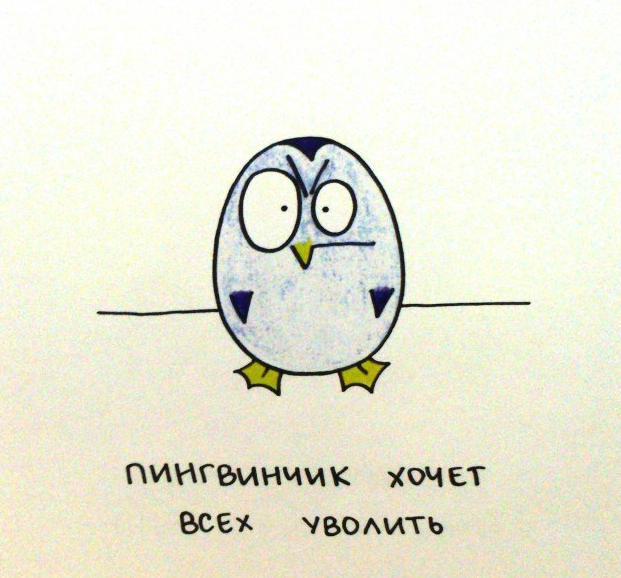 ПИНГВИНЧИК ХОЧЕТ
ВСЕХ УВОЛИТЬ